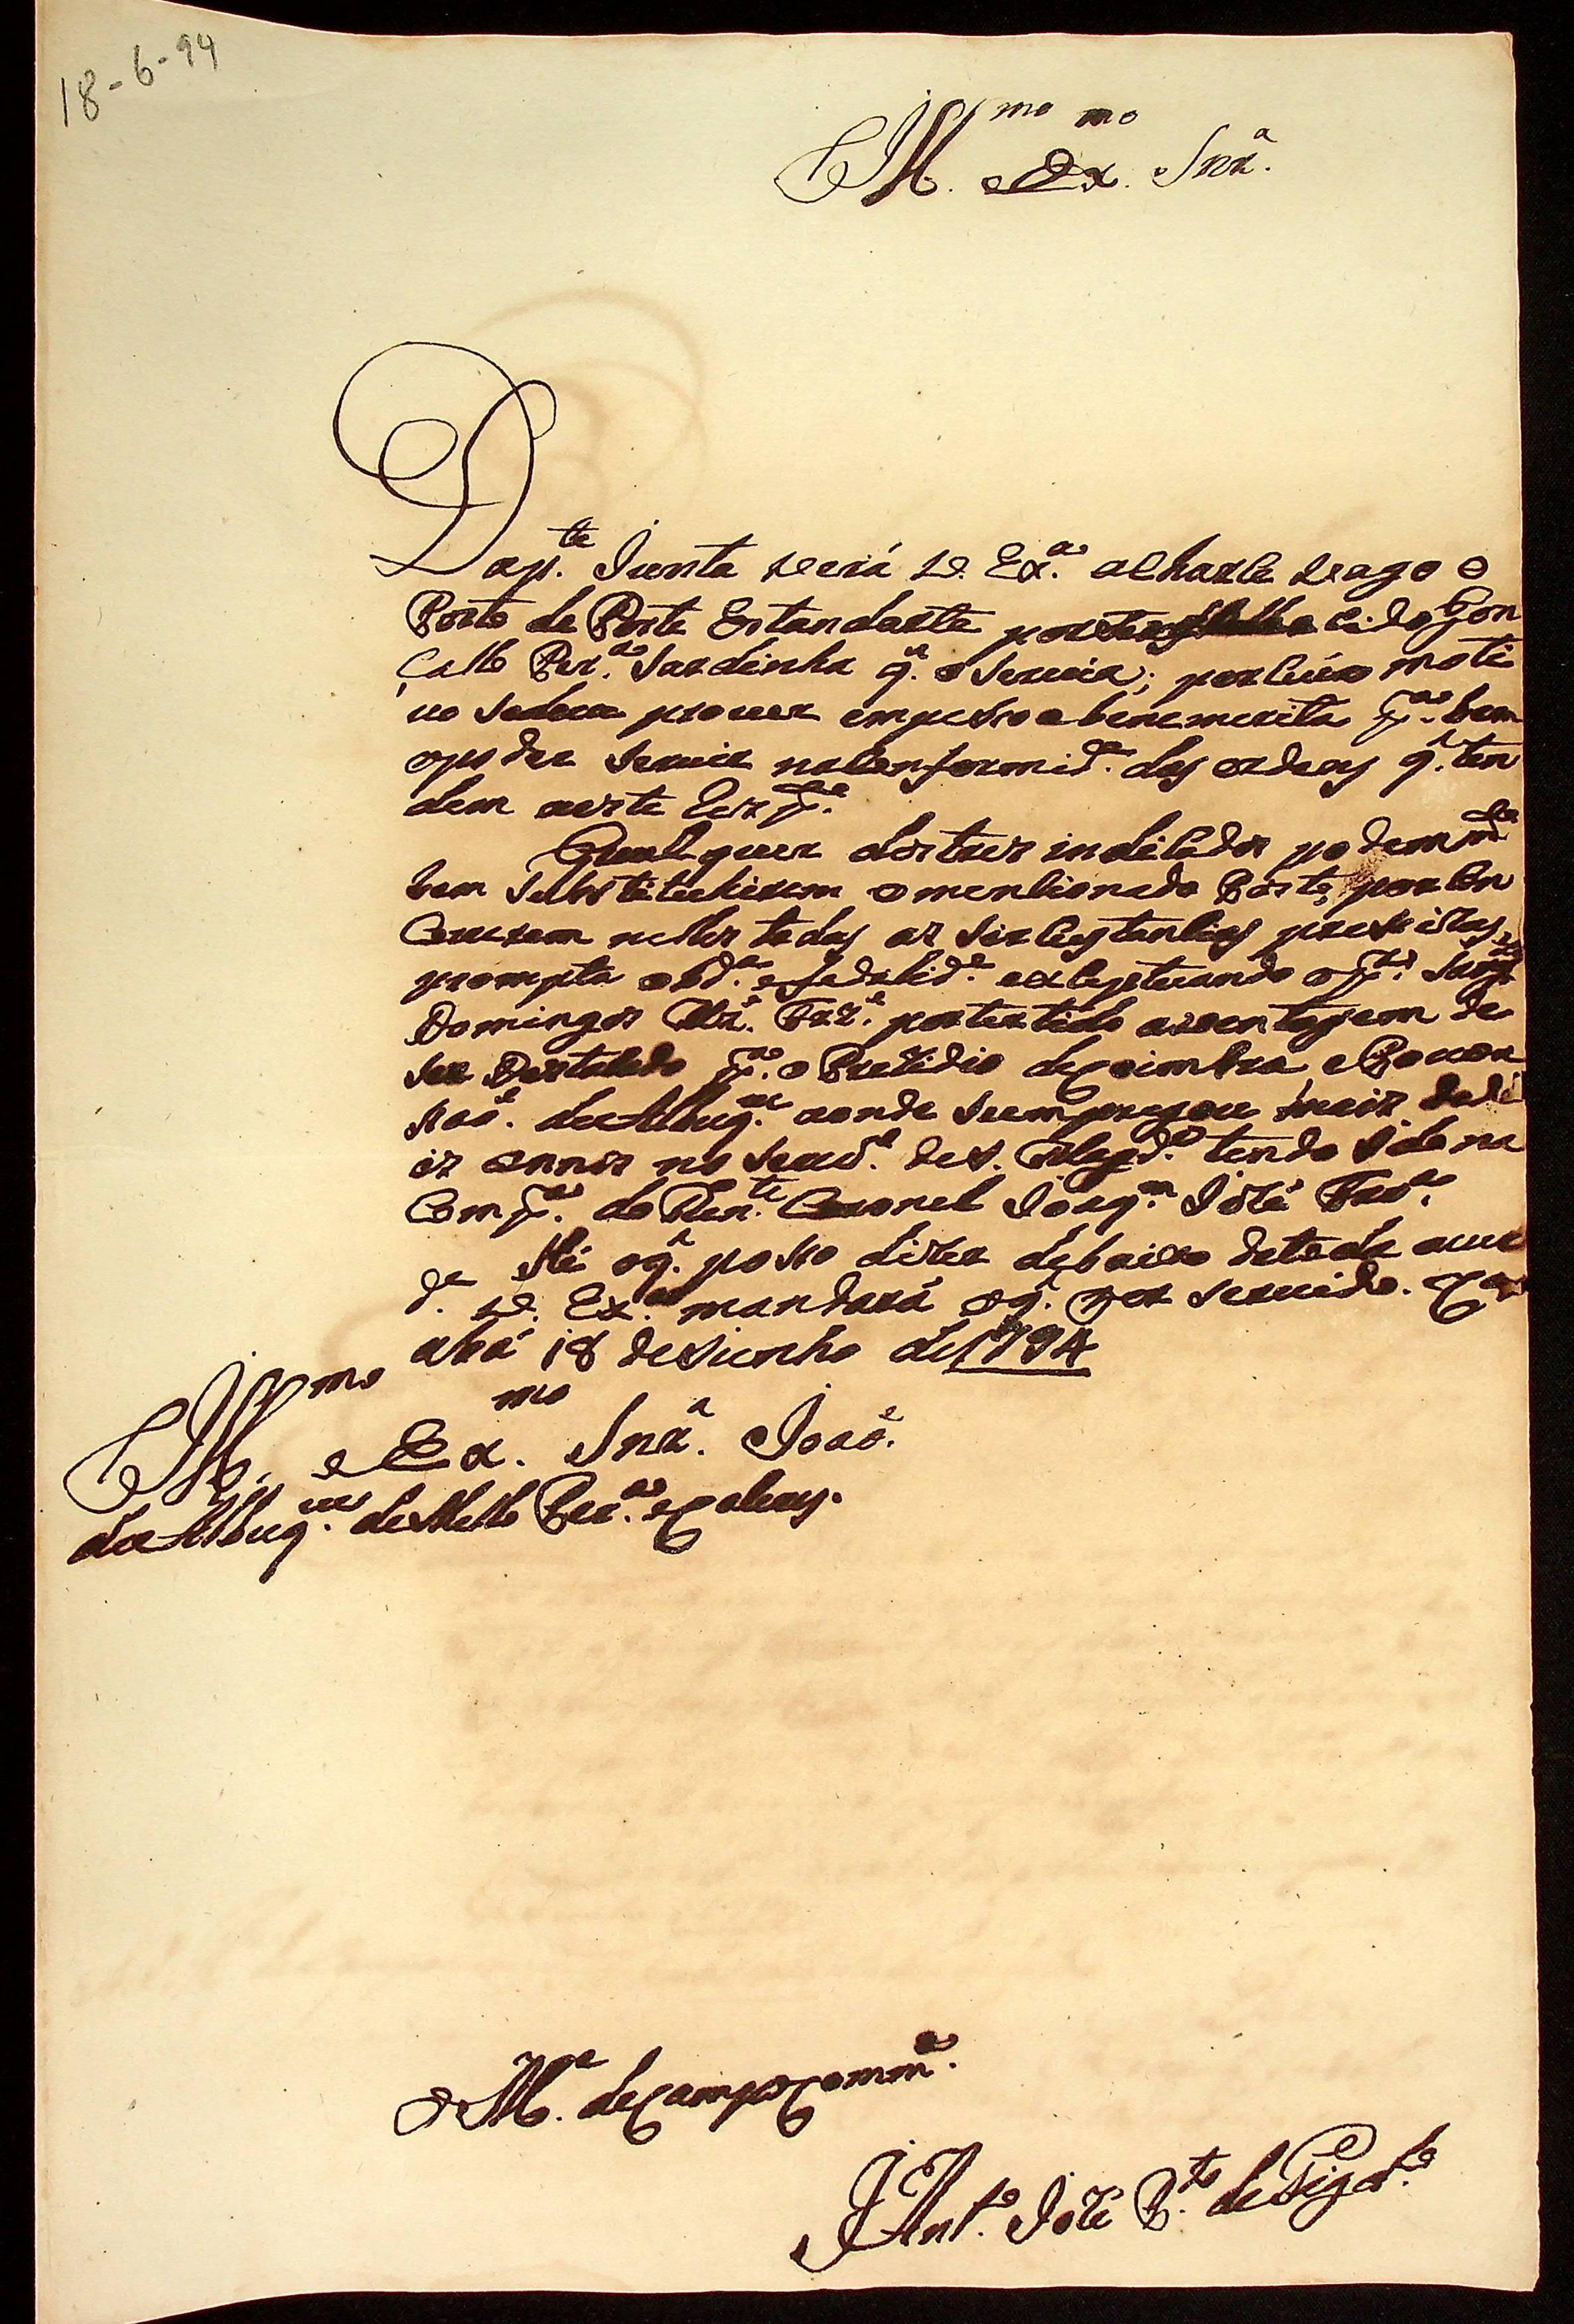 18-6-94
Ill.mo e Ex.mo Snr.
Da p.te Junta verá V. Ex.a acharse vago o
Posto de Porta Estandarte por ter falecido Gon
çallo Per.a Sardinha q. o Servia; por cujo moti
vo se deve prover em pessoa benemerita p.a bem
o poder servir na Conformid.e das ordens q. ten
dem a este Resp.to
Qualquer dos tres indicados podem m.to
bem Substituhirem o mencionado Posto, por Con
Correrem nelles todas as Sircustancias precizas,
prompta obd.a e fedelid.e exceptuando o p.o Sarg.to
Domingos Frr.a por ter tido a ventagem de
ser Destacado p.a o Prezidio de Coimbra e Povoa
são. de Albuq.e aonde se empregou mais de do
is annos no Serv.o de S. Mag.de tendo hido na
Comp.a do Ten.te Coronel Joaq.m José Ferr.a
He o q. posso dizer debaixo de toda a ver
d.e V. Ex.a mandará o q. for servido. Cui
abá 18 de Junho de 1794
Ill.mo e Ex.mo Snr. João.
de Albuq.e de Mello Per.a e Caceres.
O M.e de Campo Comm.e
Ant.o José P.to de Figd.o